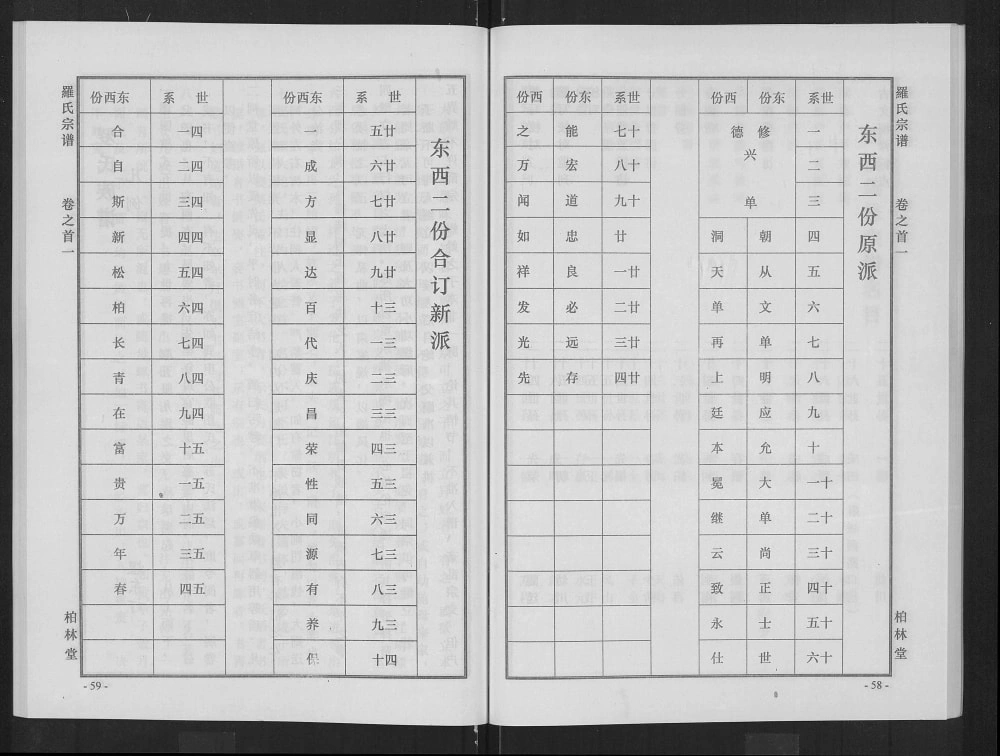 羅氏宗谱
卷之首一
柏林堂
东西二份原派
世系 东份 西份
一 修 德
二 兴
三 单
四 朝 洞
五 从 天
六 文 单
七 单 再
八 明 上
九 应 廷
十 允 本
十一 大 冕
十二 单 继
十三 尚 云
十四 正 致
十五 士 永
十六 世 仕
世系 东份 西份
十七 能 之
十八 宏 万
十九 道 闻
廿 忠 如
廿一 良 祥
廿二 必 发
廿三 远 光
廿四 存 先
- 58 -
东西二份合订新派
世系 东西份
廿五 一
廿六 成
廿七 方
廿八 显
廿九 达
三十 百
三一 代
三二 庆
三三 昌
三四 荣
三五 性
三六 同
三七 源
三八 有
三九 养
四十 保
世系 东西份
四一 合
四二 自
四三 斯
四四 新
四五 松
四六 柏
四七 长
四八 青
四九 在
五十 富
五一 贵
五二 万
五三 年
五四 春
羅氏宗谱
卷之首一
柏林堂
- 59 -